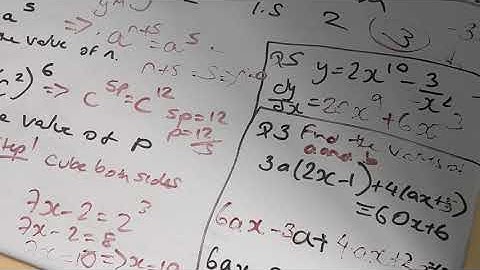 a^5
=> a^{n+5} = a^5.
the value of n.
n+5=5
c^2)^6 => c^{5p} = c^{12}
5p=12
p=12/5
e value of p
step! cube both sides
7x-2=2^3
7x-2=8
7x=10 =>
1.5
2 ( 3 ) -3
Q5 y=2x^{10} - 3/x^2
dy/dx = 20x^9 + 6x^{-3}
Q3 Find the values of
a and b
3a(2x-1)+4(ax+3)
≡60x+6
6ax-3a+4ax+
6ax